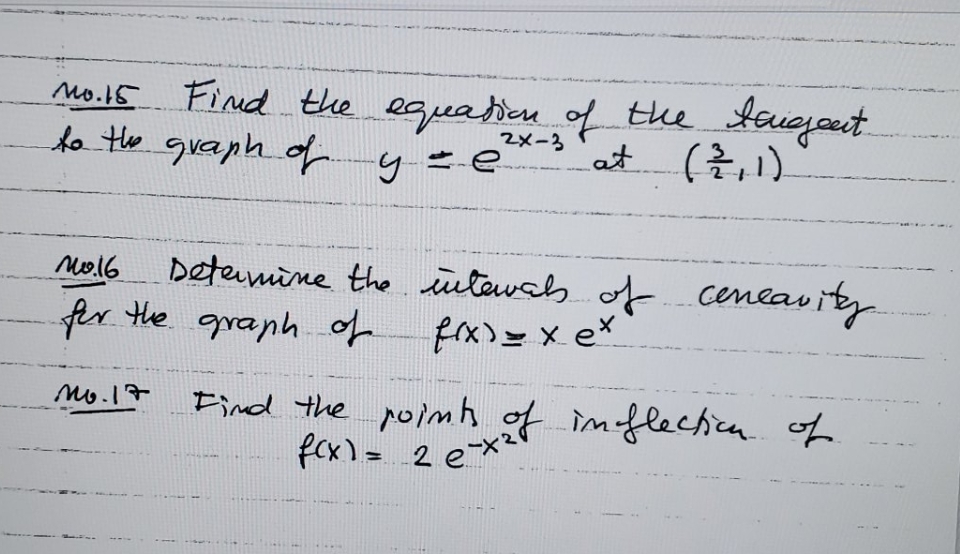 No.15 Find the equation of the tangent
to the graph of y = e^{2x-3} at (3/2, 1)
No.16 Determine the intervals of concavity
for the graph of f(x) = x e^x
No.17 Find the points of inflection of
f(x) = 2 e^{-x^2}